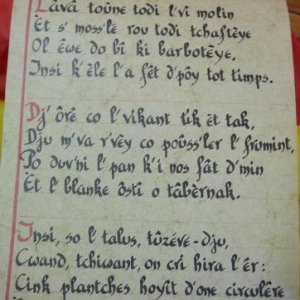 Lâvâ toûne todi l'vi molin
Èt s' moss'lé rou todi tchaftêye
Ol êwe do bî ki barbotêye,
Insi k'èle l'a fêt d'pôy tot timps.
Dj' ôrè co l'vikant tik èt tak,
Dju m'va r'vêy co poûss'ler l'frumint,
Po duv'ni l'pan k'i nos fât d'min
Èt l'blanke ôsti o tâbèrnak.
Insi, so l'talus, tûzéve-dju,
Cwand, tchiwant, on cri hira l'êr:
Cink plantches hoyît d'one circulêre